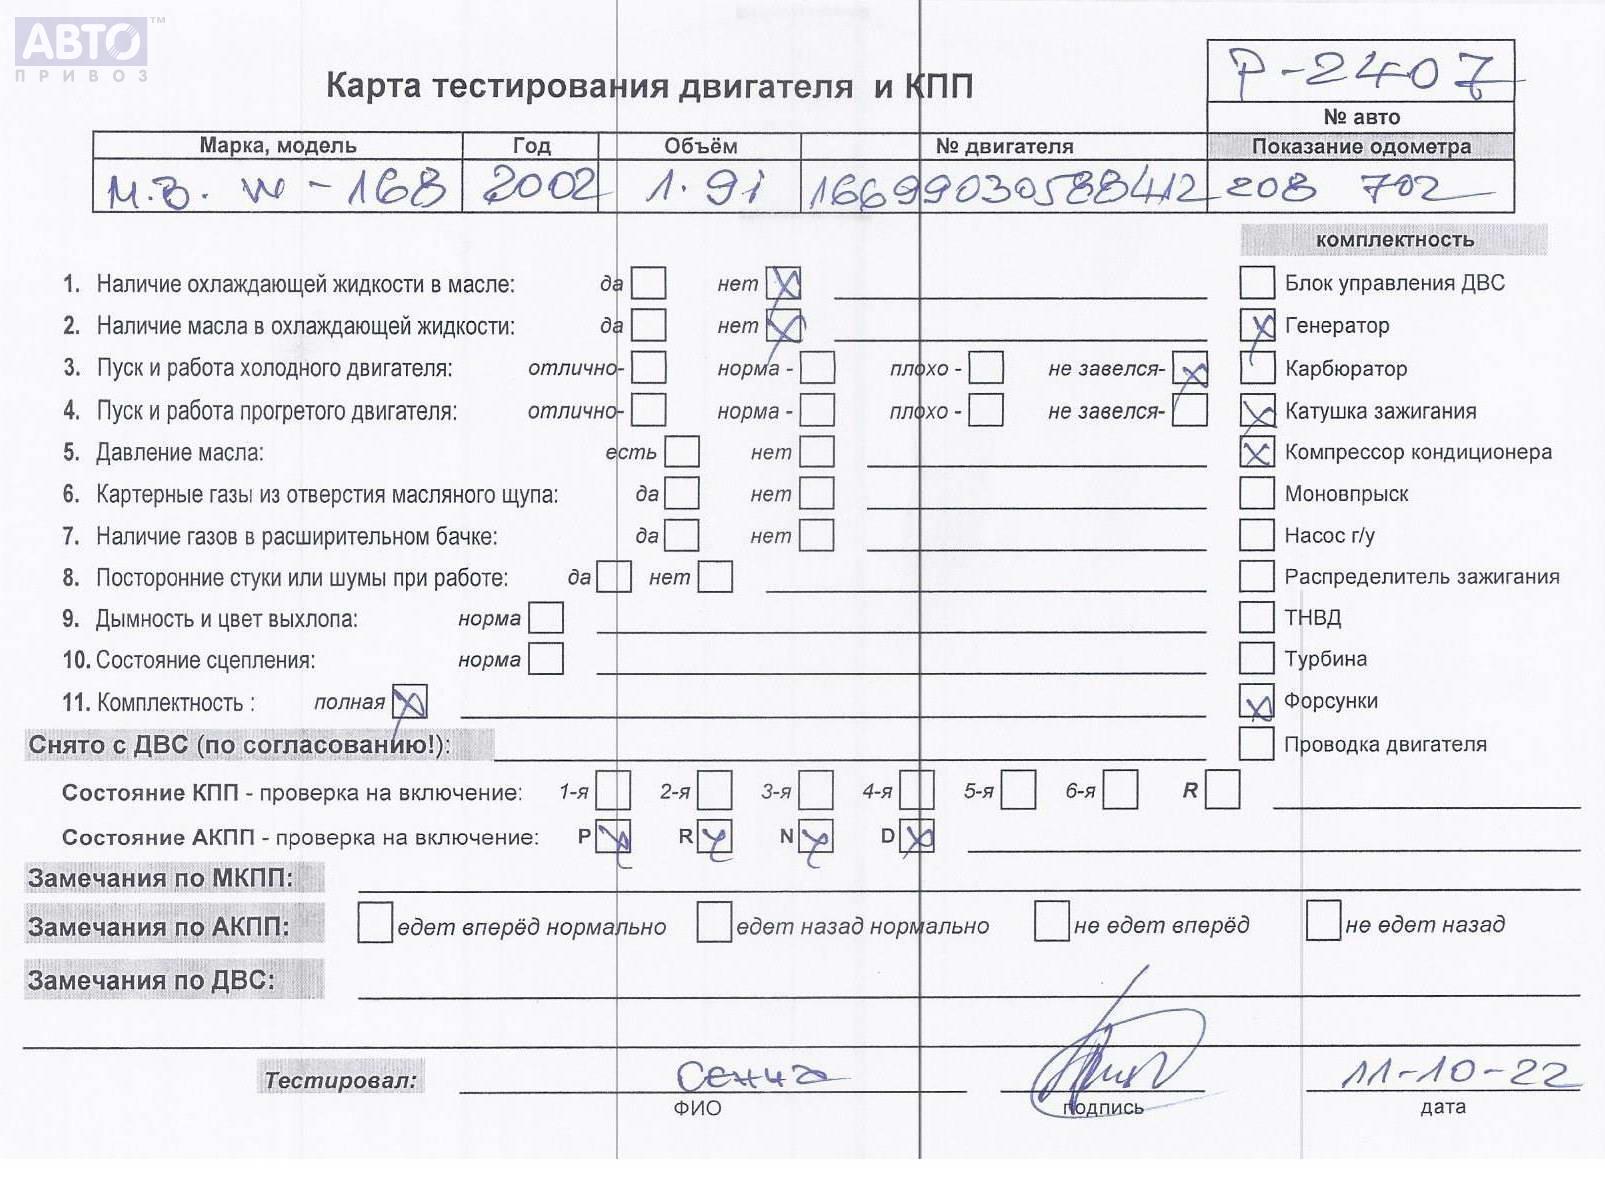 АВТО ТМ
ПРИВОЗ
Карта тестирования двигателя и КПП
Р-2407
№ авто
Марка, модель Год Объём № двигателя Показание одометра
М.В. W-168 2002 1.9i 16699030588412 208 702
комплектность
1. Наличие охлаждающей жидкости в масле: да нет Блок управления ДВС
2. Наличие масла в охлаждающей жидкости: да нет Генератор
3. Пуск и работа холодного двигателя: отлично- норма - плохо - не завелся- Карбюратор
4. Пуск и работа прогретого двигателя: отлично- норма - плохо - не завелся- Катушка зажигания
5. Давление масла: есть нет Компрессор кондиционера
6. Картерные газы из отверстия масляного щупа: да нет Моновпрыск
7. Наличие газов в расширительном бачке: да нет Насос г/у
8. Посторонние стуки или шумы при работе: да нет Распределитель зажигания
9. Дымность и цвет выхлопа: норма ТНВД
10. Состояние сцепления: норма Турбина
11. Комплектность : полная Форсунки
Снято с ДВС (по согласованию!): Проводка двигателя
Состояние КПП - проверка на включение: 1-я 2-я 3-я 4-я 5-я 6-я R
Состояние АКПП - проверка на включение: P R N D
Замечания по МКПП:
Замечания по АКПП: едет вперёд нормально едет назад нормально не едет вперёд не едет назад
Замечания по ДВС:
Тестировал: 11-10-22
ФИО подпись дата